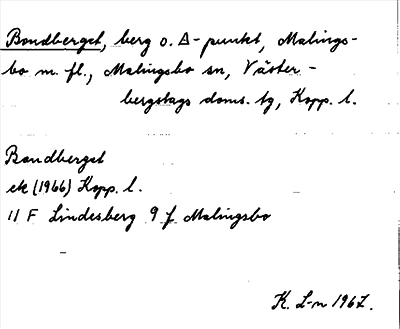 Bondberget, berg o. Δ-punkt, Malings-
bo m. fl., Malingsbo sn, Väster-
bergslags doms. tg, Kopp. l.
Bondberget
ek (1966) Kopp. l.
11 F Lindesberg 9 f Malingsbo
K. L-n 1967.